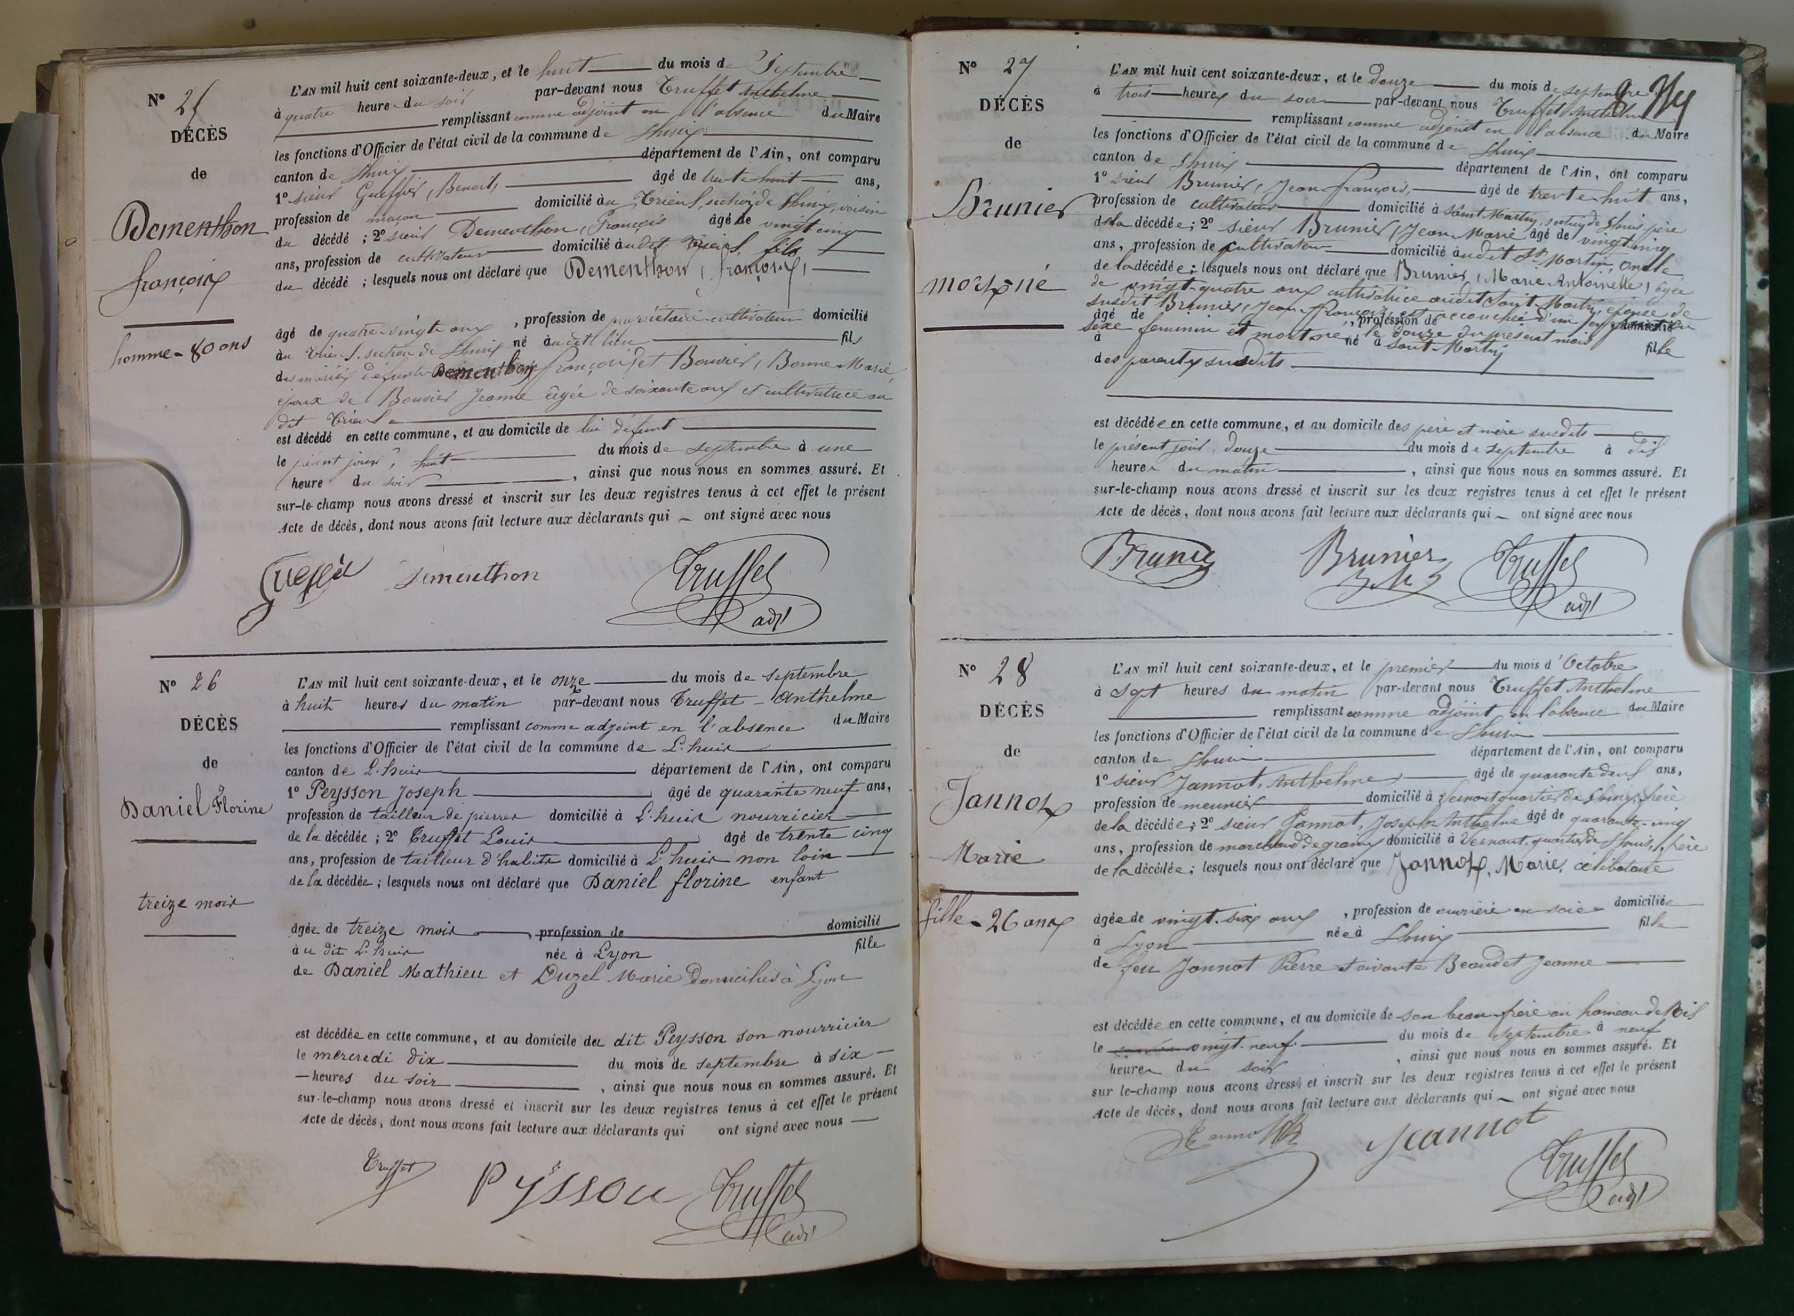 N° 25
DÉCÈS
de
Dementhon
françois
homme - 80 ans
L'AN mil huit cent soixante-deux, et le huit du mois de Septembre
à quatre heures du soir par-devant nous Truffet Anthelme
remplissant comme adjoint en l'absence du Maire
les fonctions d'Officier de l'état civil de la commune de Lhuis
canton de Lhuis département de l'Ain, ont comparu
1° sieur Benoit, âgé de trente huit ans,
profession de maçon domicilié au section de Lhuis, voisin
du décédé ; 2° sieur Dementhon, François âgé de vingt cinq
ans, profession de cultivateur domicilié audit fils
du décédé ; lesquels nous ont déclaré que Dementhon, françois,
âgé de quatre-vingts ans, profession de propriétaire cultivateur domicilié
au section de Lhuis né audit lieu fils
des mariés défunts Dementhon françois et Bouvier, Bonne Marie,
époux de Bouvier Jeanne âgée de soixante ans et cultivatrice au
dit
est décédé en cette commune, et au domicile de lui défunt
le présent jour, huit du mois de septembre à une
heure du soir, ainsi que nous nous en sommes assuré. Et
sur-le-champ nous avons dressé et inscrit sur les deux registres tenus à cet effet le présent
Acte de décès, dont nous avons fait lecture aux déclarants qui ont signé avec nous
Dementhon Truffet
adjt
N° 26
DÉCÈS
de
Daniel Florine
treize mois
L'AN mil huit cent soixante-deux, et le onze du mois de septembre
à huit heures du matin par-devant nous Truffet - Anthelme
remplissant comme adjoint en l'absence du Maire
les fonctions d'Officier de l'état civil de la commune de L'huis
canton de L'huis département de l'Ain, ont comparu
1° Peysson Joseph âgé de quarante neuf ans,
profession de tailleur de pierres domicilié à L'huis nourricier
de la décédée ; 2° Truffet Louis âgé de trente cinq
ans, profession de tailleur d'habits domicilié à L'huis non loin
de la décédée ; lesquels nous ont déclaré que Daniel florine enfant
âgée de treize mois, profession de domicilié
au dit L'huis née à Lyon fille
de Daniel Mathieu et Duzel Marie Domiciliés à Lyon
est décédée en cette commune, et au domicile du dit Peysson son nourricier
le mercredi dix du mois de septembre à six
heures du soir, ainsi que nous nous en sommes assuré. Et
sur-le-champ nous avons dressé et inscrit sur les deux registres tenus à cet effet le présent
Acte de décès, dont nous avons fait lecture aux déclarants qui ont signé avec nous
Truffet Peysson Truffet
adjt
N° 27
DÉCÈS
de
Brunier
mort né
L'AN mil huit cent soixante-deux, et le douze du mois de septembre
à trois heures du soir par-devant nous Truffet, Anthelme
remplissant comme adjoint en l'absence du Maire
les fonctions d'Officier de l'état civil de la commune de Lhuis
canton de Lhuis département de l'Ain, ont comparu
1° sieur Brunier, Jean-françois, âgé de trente-huit ans,
profession de cultivateur domicilié à Saint-Martin, section de Lhuis père
de la décédée ; 2° sieur Brunier, Jean-Marie âgé de vingt cinq
ans, profession de cultivateur domicilié audit St Martin, oncle
de la décédée ; lesquels nous ont déclaré que Brunier, Marie-Antoinette, âgée
de vingt-quatre ans cultivatrice audit Saint-Martin, épouse de
susdit Brunier, Jean-François, est accouchée d'un enfant du
âgé de profession de domicilié
sexe féminin et mort né, le douze du présent mois
à né à Saint-Martin fille
des parents susdits
est décédée en cette commune, et au domicile des père et mère susdits
le présent jour, douze du mois de septembre à dix
heures du matin, ainsi que nous nous en sommes assuré. Et
sur-le-champ nous avons dressé et inscrit sur les deux registres tenus à cet effet le présent
Acte de décès, dont nous avons fait lecture aux déclarants qui ont signé avec nous
Brunier Brunier Truffet
adjt
N° 28
DÉCÈS
de
Jannot
Marie
fille - 26 ans
L'AN mil huit cent soixante-deux, et le premier du mois d'Octobre
à sept heures du matin par-devant nous Truffet Anthelme
remplissant comme adjoint en l'absence du Maire
les fonctions d'Officier de l'état civil de la commune de Lhuis
canton de Lhuis département de l'Ain, ont comparu
1° sieur Jannot, Anthelme, âgé de quarante deux ans,
profession de meunier domicilié à Vernant quartier de Lhuis, frère
de la décédée ; 2° sieur Jannot, Joseph Anthelme âgé de quarante-cinq
ans, profession de marchand de grains domicilié à Vernant, quartier de Lhuis, frère
de la décédée ; lesquels nous ont déclaré que Jannot, Marie, célibataire
âgée de vingt-six ans, profession de ouvrière en soie domiciliée
à Lyon née à Lhuis fille
de feu Jannot Pierre et vivante Beaudet Jeanne
est décédée en cette commune, et au domicile de son beau-frère au hameau de
le vingt-neuf du mois de septembre à neuf
heures du soir, ainsi que nous nous en sommes assuré. Et
sur-le-champ nous avons dressé et inscrit sur les deux registres tenus à cet effet le présent
Acte de décès, dont nous avons fait lecture aux déclarants qui ont signé avec nous
Jeannot
Truffet
adjt